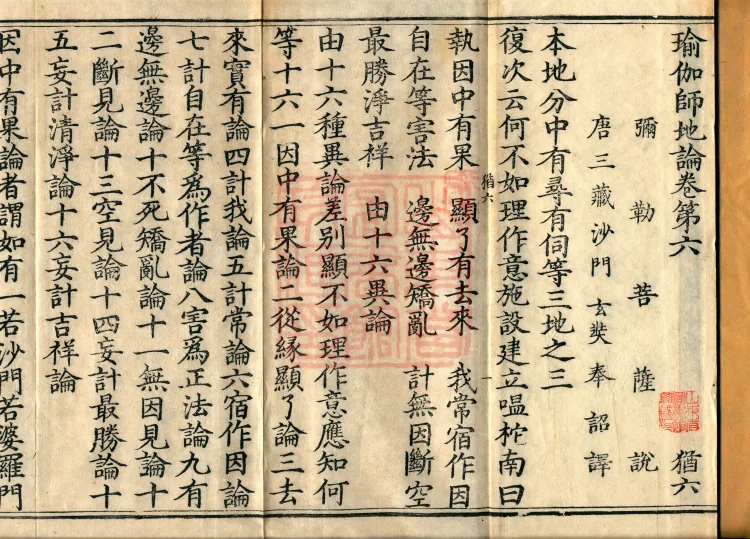 瑜伽師地論卷第六 猶六
彌勒菩薩說
唐三藏沙門玄奘奉詔譯
本地分中有尋有伺等三地之三
復次云何不如理作意施設建立嗢柁南曰
執因中有果 顯了有去來 我常宿作因
自在等害法 邊無邊矯亂 計無因斷空
最勝淨吉祥 由十六異論
猶六
由十六種異論差別顯不如理作意應知何
等十六一因中有果論二從緣顯了論三去
來實有論四計我論五計常論六宿作因論
七計自在等爲作者論八害爲正法論九有
邊無邊論十不死矯亂論十一無因見論十
二斷見論十三空見論十四妄計最勝論十
五妄計清淨論十六妄計吉祥論
因中有果論者謂如有一若沙門若婆羅門